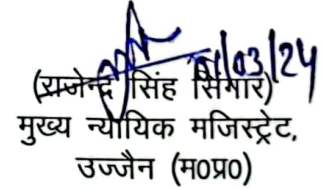 /03/24
(राजेन्द्र सिंह सिंगार)
मुख्य न्यायिक मजिस्ट्रेट,
उज्जैन (म0प्र0)